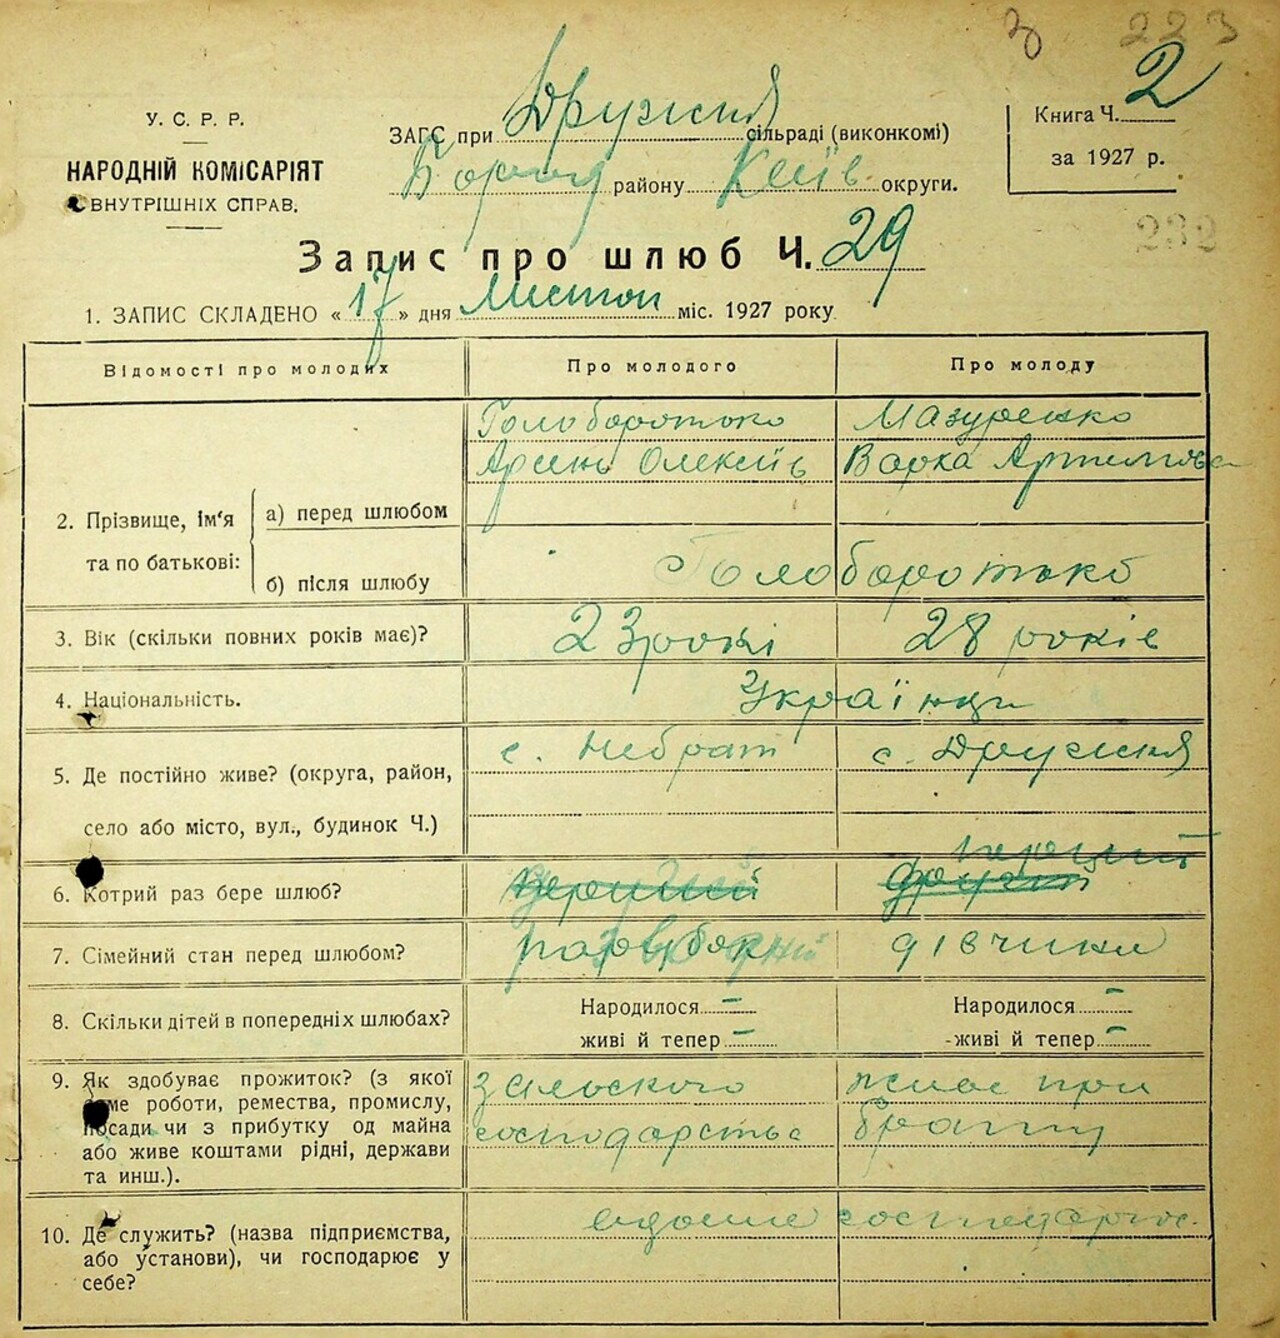 223
У. С. Р. Р.
НАРОДНІЙ КОМІСАРІЯТ
ВНУТРІШНІХ СПРАВ.
ЗАГС при Дружня сільраді (виконкомі)
Бород району Київ. округи.
Книга Ч. 2
за 1927 р.
232
Запис про шлюб Ч. 29
1. ЗАПИС СКЛАДЕНО « 17 » дня Листоп міс. 1927 року
Відомості про молодих
Про молодого
Про молоду
2. Прізвище, ім'я та по батькові:
а) перед шлюбом
Голоборотько
Арсень Олексіїв
Мазуренко
Варка Артемова
б) після шлюбу
Голоборотько
3. Вік (скільки повних років має)?
23 роки
28 років
4. Національність.
Українци
5. Де постійно живе? (округа, район,
село або місто, вул., будинок Ч.)
с. Небрат
с. Дружня
6. Котрий раз бере шлюб?
перший
другий
перший
7. Сімейний стан перед шлюбом?
парубок
дівчина
8. Скільки дітей в попередніх шлюбах?
Народилося –
живі й тепер –
Народилося –
живі й тепер –
9. Як здобуває прожиток? (з якої
саме роботи, ремества, промислу,
посади чи з прибутку од майна
або живе коштами рідні, держави
та инш.).
з сільского
господарства
живе при
10. Де служить? (назва підприємства,
або установи), чи господарює у
себе?